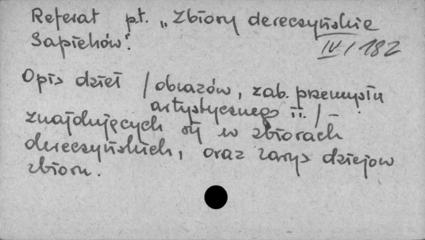 Referat pt. „Zbiory dereczyńskie
Sapiehów".
IV/182
Opis dzieł /obrazów, zab. przemysłu
artystycznego ii. / –
znajdujących się w zbiorach
dereczyńskich, oraz zarys dziejów
zbioru.